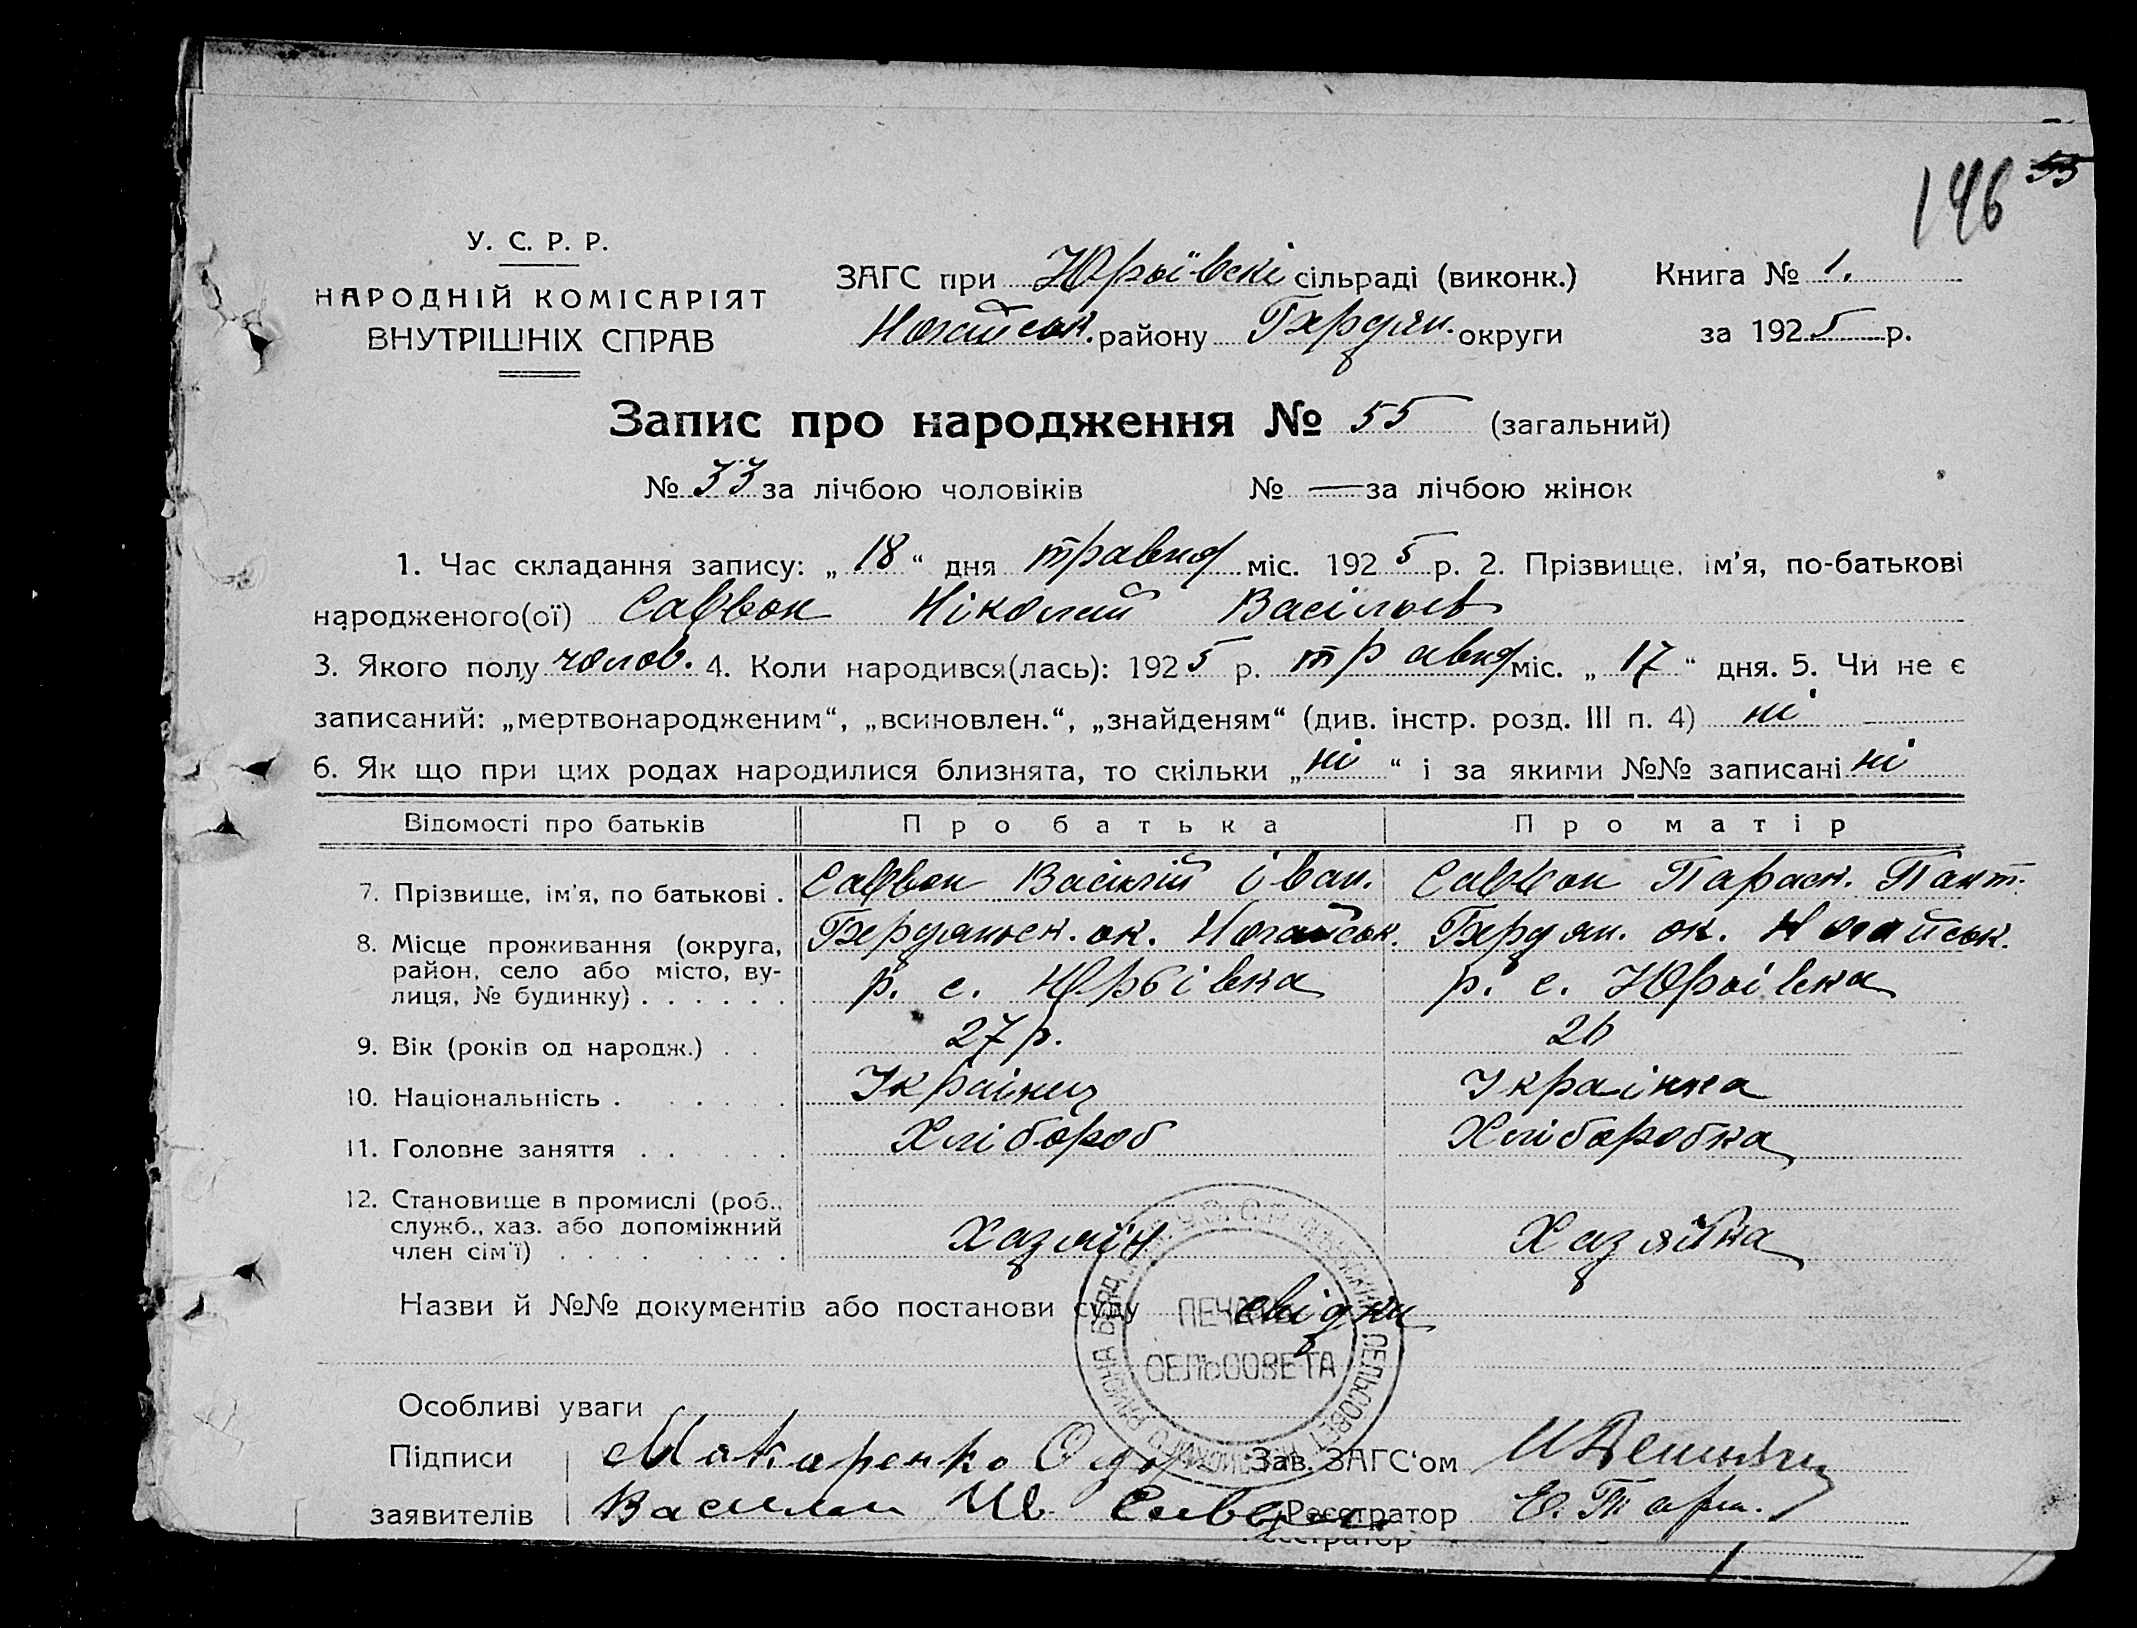 146 55
У. С. Р. Р.
НАРОДНІЙ КОМІСАРІЯТ
ВНУТРІШНІХ СПРАВ
ЗАГС при Юрьївскі сільраді (виконк.) Книга № 1.
Ногайськ. району Бердян. округи за 1925 р.
Запис про народження № 55 (загальний)
№ 33 за лічбою чоловіків № — за лічбою жінок
1. Час складання запису: „ 18 “ дня травня міс. 1925 р. 2. Прізвище, ім'я, по-батькові
народженого(ої) Саввон Ніколай Васільєв
3. Якого полу чолов. 4. Коли народився(лась): 1925 р. травня міс. „ 17 “ дня. 5. Чи не є
записаний: „мертвонародженим“, „всиновлен.“, „знайденям“ (див. інстр. розд. III п. 4) ні
6. Як що при цих родах народилися близнята, то скільки „ ні “ і за якими №№ записані ні
Відомості про батьків Про батька Про матір
7. Прізвище, ім'я, по батькові . Саввон Васілій Іван. Саввон Параск. Пант.
8. Місце проживання (округа, Бердянськ. ок. Ногайськ. Бердян. ок. Ногайськ.
район, село або місто, ву-
лиця, № будинку) . . . . . . р. с. Юрьівка р. с. Юрьівка
9. Вік (років од народж.) . . 27 р. 26
10. Національність . . . . . . Українец Українка
11. Головне заняття . . . . . Хлібороб Хліборобка
12. Становище в промислі (роб.,
служб., хаз. або допоміжний
член сім'ї) . . . . . . . . . Хазяїн Хазяйка
Назви й №№ документів або постанови суду свідки
ПЕЧАТЬ
СЕЛЬСОВЕТА
Особливі уваги
Підписи Макаренко Зав. ЗАГС'ом
заявителів Василий Ив Реєстратор
Реєстратор